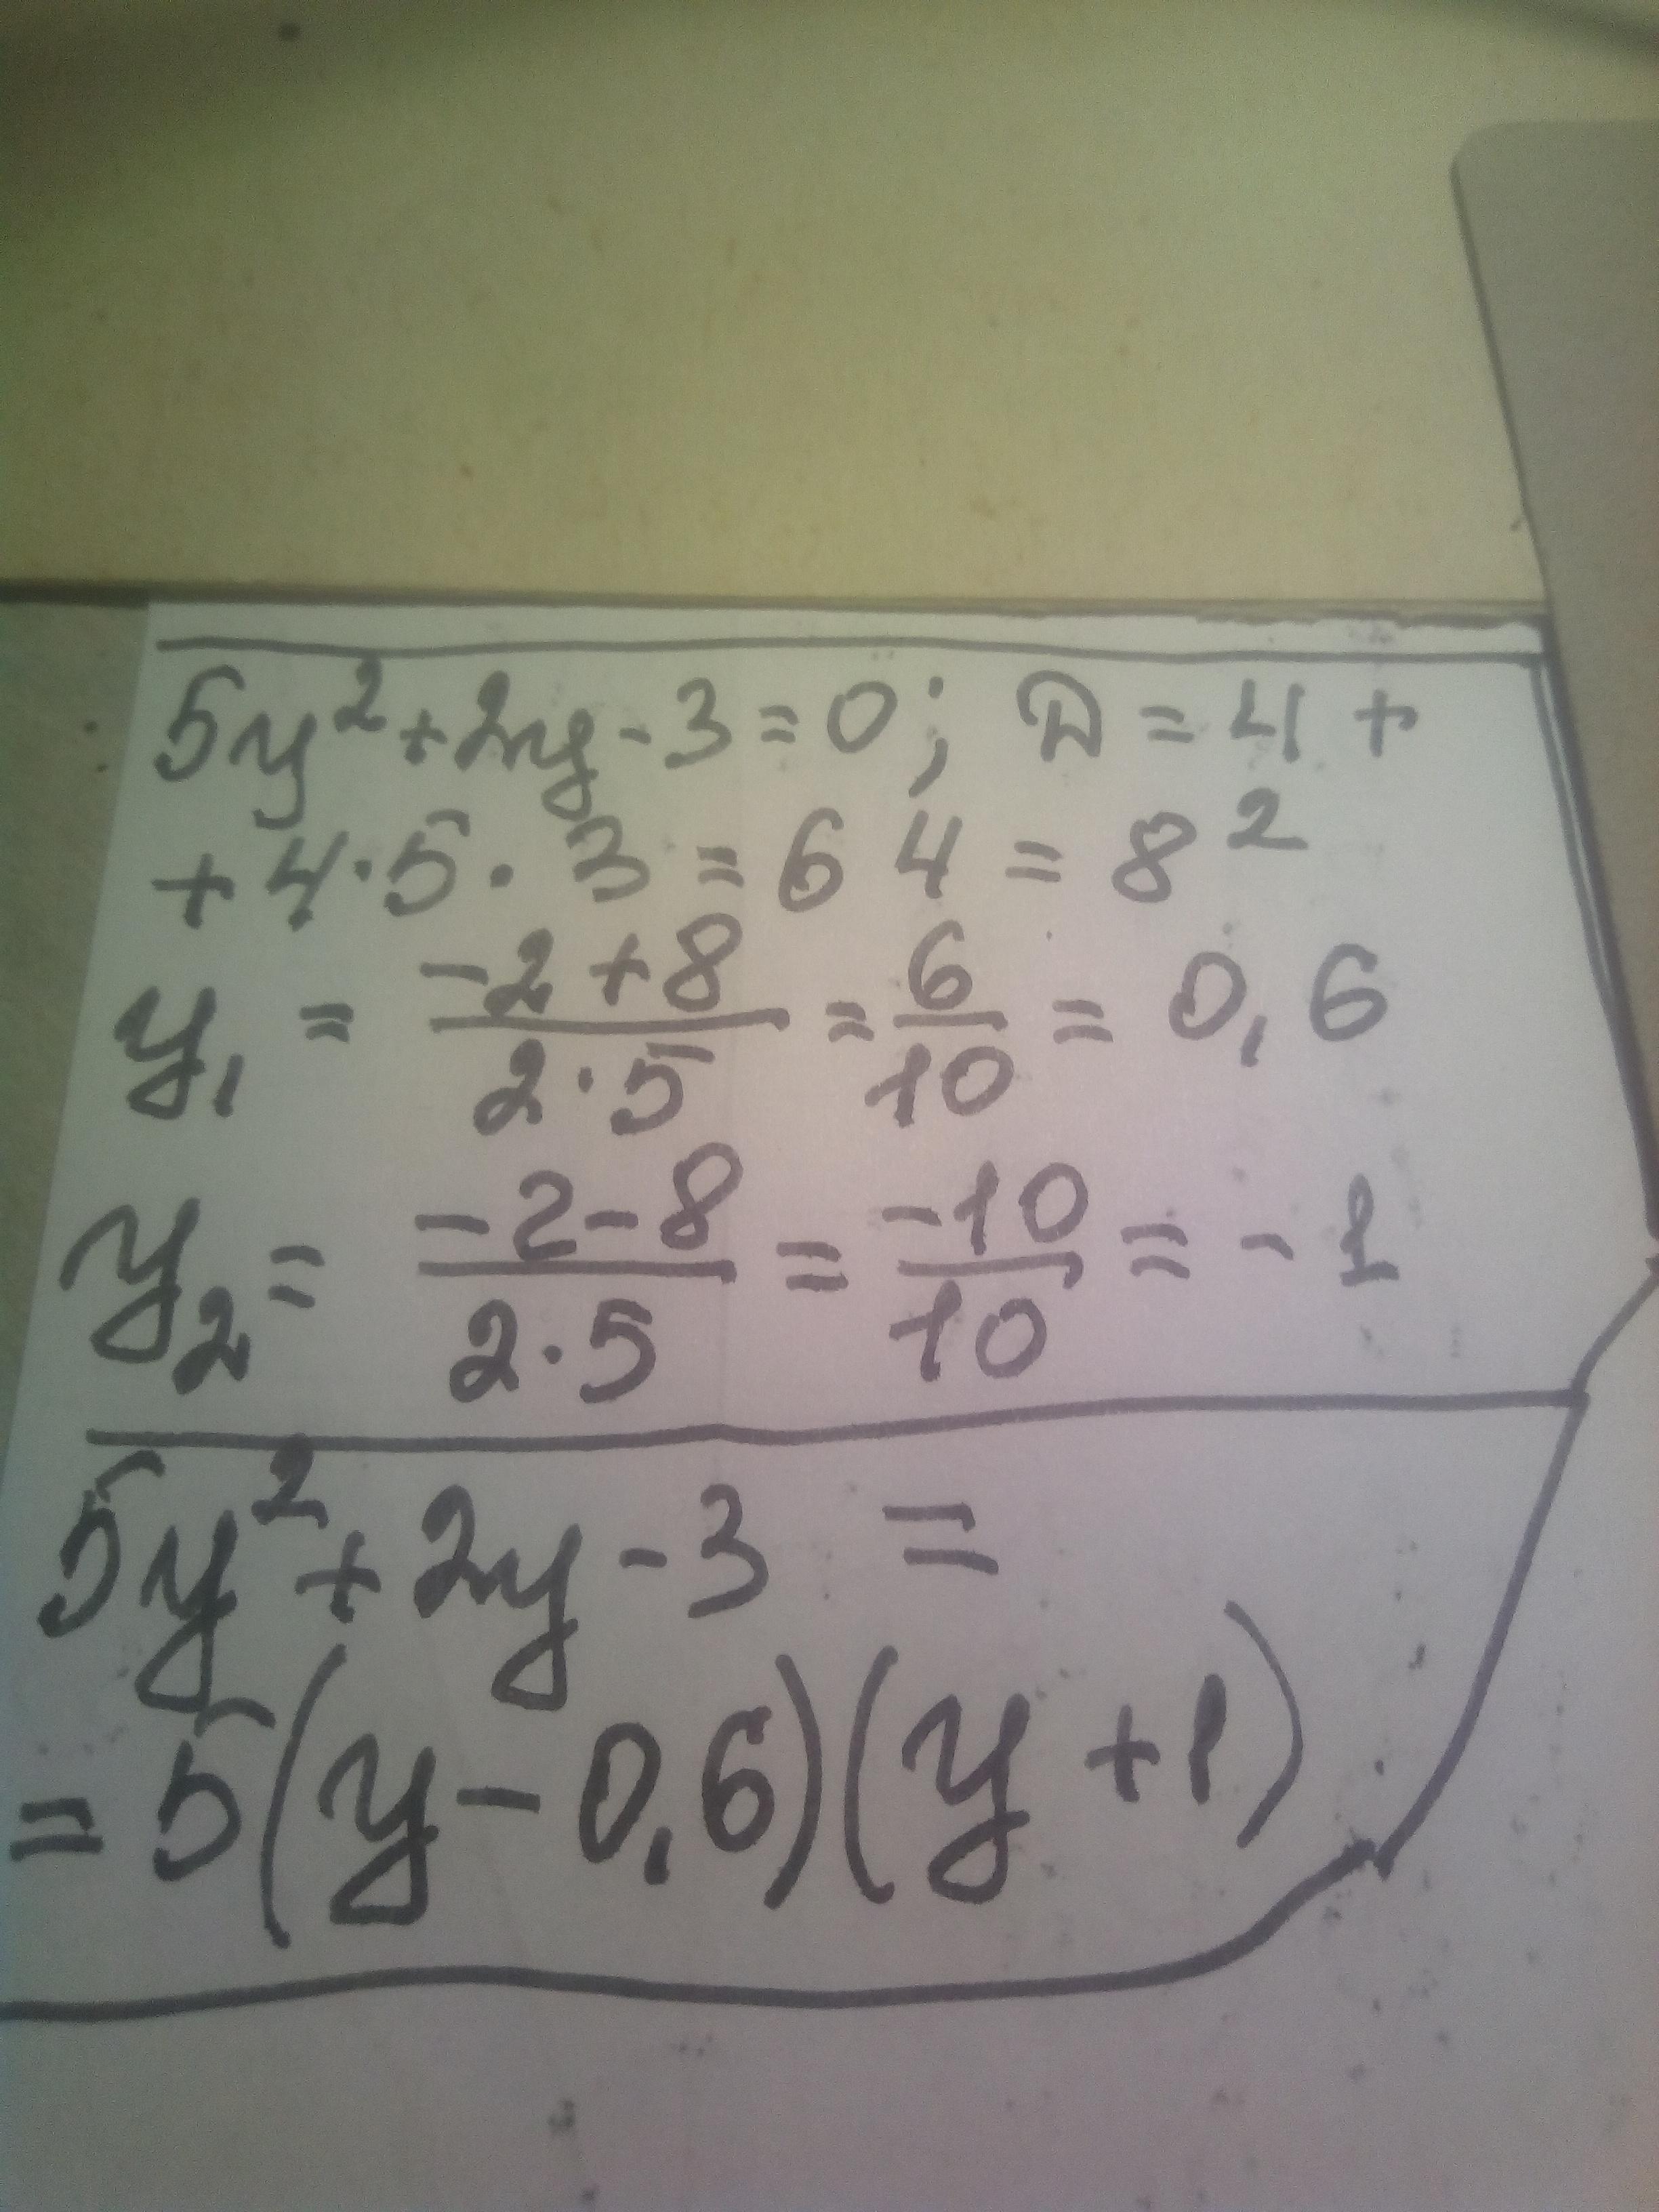 5y²+2y-3=0; D=4+
+4·5·3=64=8²
y₁ = (-2+8)/(2·5) = 6/10 = 0,6
y₂ = (-2-8)/(2·5) = -10/10 = -1
5y²+2y-3 =
=5(y-0,6)(y+1)